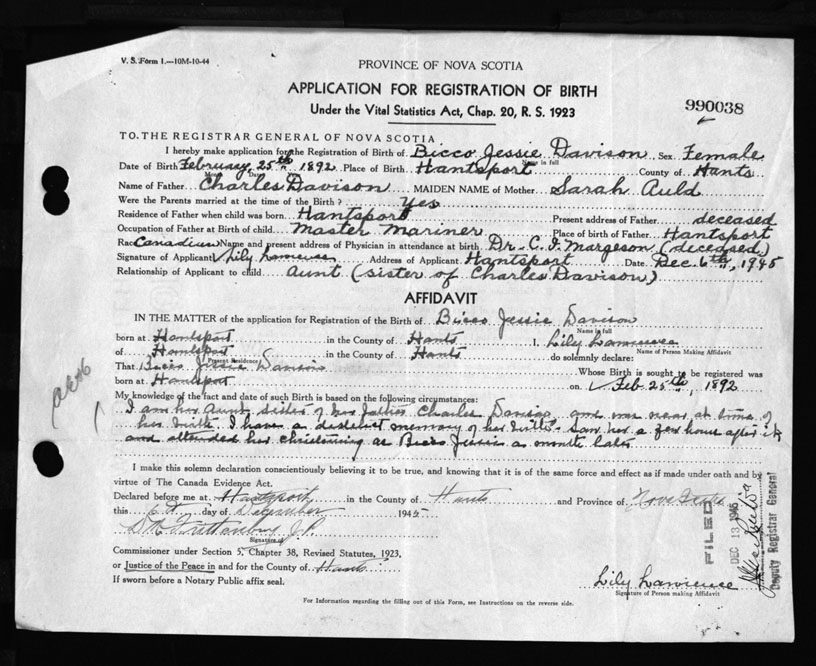 V. S. Form 1.—10M-10-44
PROVINCE OF NOVA SCOTIA
APPLICATION FOR REGISTRATION OF BIRTH
Under the Vital Statistics Act, Chap. 20, R. S. 1923
990038
TO THE REGISTRAR GENERAL OF NOVA SCOTIA
I hereby make application for the Registration of Birth of Bicco Jessie Davison Sex Female
Name in full
Date of Birth February 25th 1892 Place of Birth Hantsport County of Hants
Name of Father Charles Davison MAIDEN NAME of Mother Sarah Auld
Were the Parents married at the time of the Birth? Yes
Residence of Father when child was born Hantsport Present address of Father deceased
Occupation of Father at Birth of child Master Mariner Place of birth of Father Hantsport
Race Canadian Name and present address of Physician in attendance at birth Dr. C. I. Margeson (deceased)
Signature of Applicant Lily Lawrence Address of Applicant Hantsport Date Dec. 6th, 1945
Relationship of Applicant to child aunt (sister of Charles Davison)
AFFIDAVIT
IN THE MATTER of the application for Registration of the Birth of Bicco Jessie Davison
Name in full
born at Hantsport in the County of Hants I, Lily Lawrence
Name of Person Making Affidavit
of Hantsport in the County of Hants do solemnly declare:
(Present Residence)
That Bicco Jessie Davison Whose Birth is sought to be registered was
born at Hantsport on Feb 25th, 1892
My knowledge of the fact and date of such Birth is based on the following circumstances:
I am her Aunt, sister of her father Charles Davison, and was near at time of
her birth. I have a distinct memory of her birth. Saw her a few hours after it
and attended her christening as Bicco Jessie a month later
I make this solemn declaration conscientiously believing it to be true, and knowing that it is of the same force and effect as if made under oath and by
virtue of The Canada Evidence Act.
Declared before me at Hantsport in the County of Hants and Province of Nova Scotia
this 6th day of December 1945
Signature of
Commissioner under Section 5, Chapter 38, Revised Statutes, 1923,
or Justice of the Peace in and for the County of Hants
If sworn before a Notary Public affix seal.
Lily Lawrence
Signature of Person making Affidavit
For Information regarding the filling out of this Form, see Instructions on the reverse side.
FILED
DEC 13 1945
Deputy Registrar General